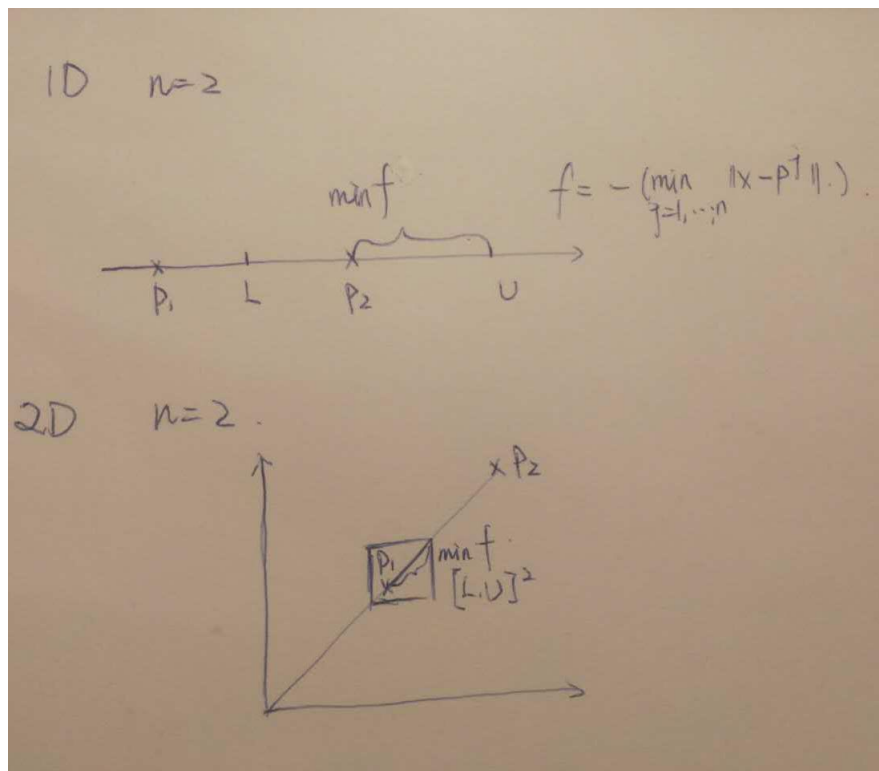 1D n=2
min f
f = - (min ‖x-p^j‖.).
j=1,...,n
P₁ L P₂ U
2D n=2.
P₂
P₁
min f.
[L.U]²